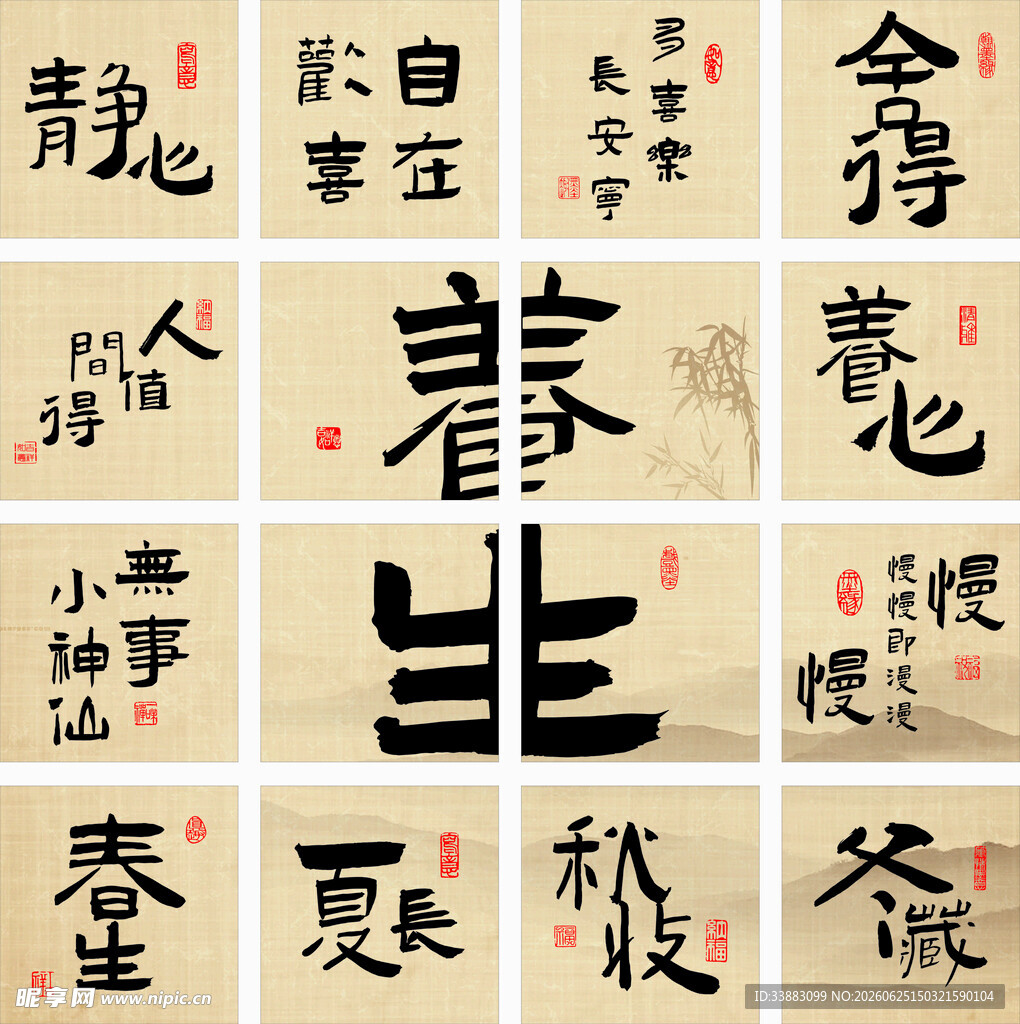 静心
自在
歡喜
多喜樂
長安寧
舍得
人間
值得
養
養心
無事
小神仙
生
慢
慢慢即漫漫
慢
春生
夏長
秋收
冬藏
昵享网 www.nipic.cn
ID:33883099 NO:20260625150321590104